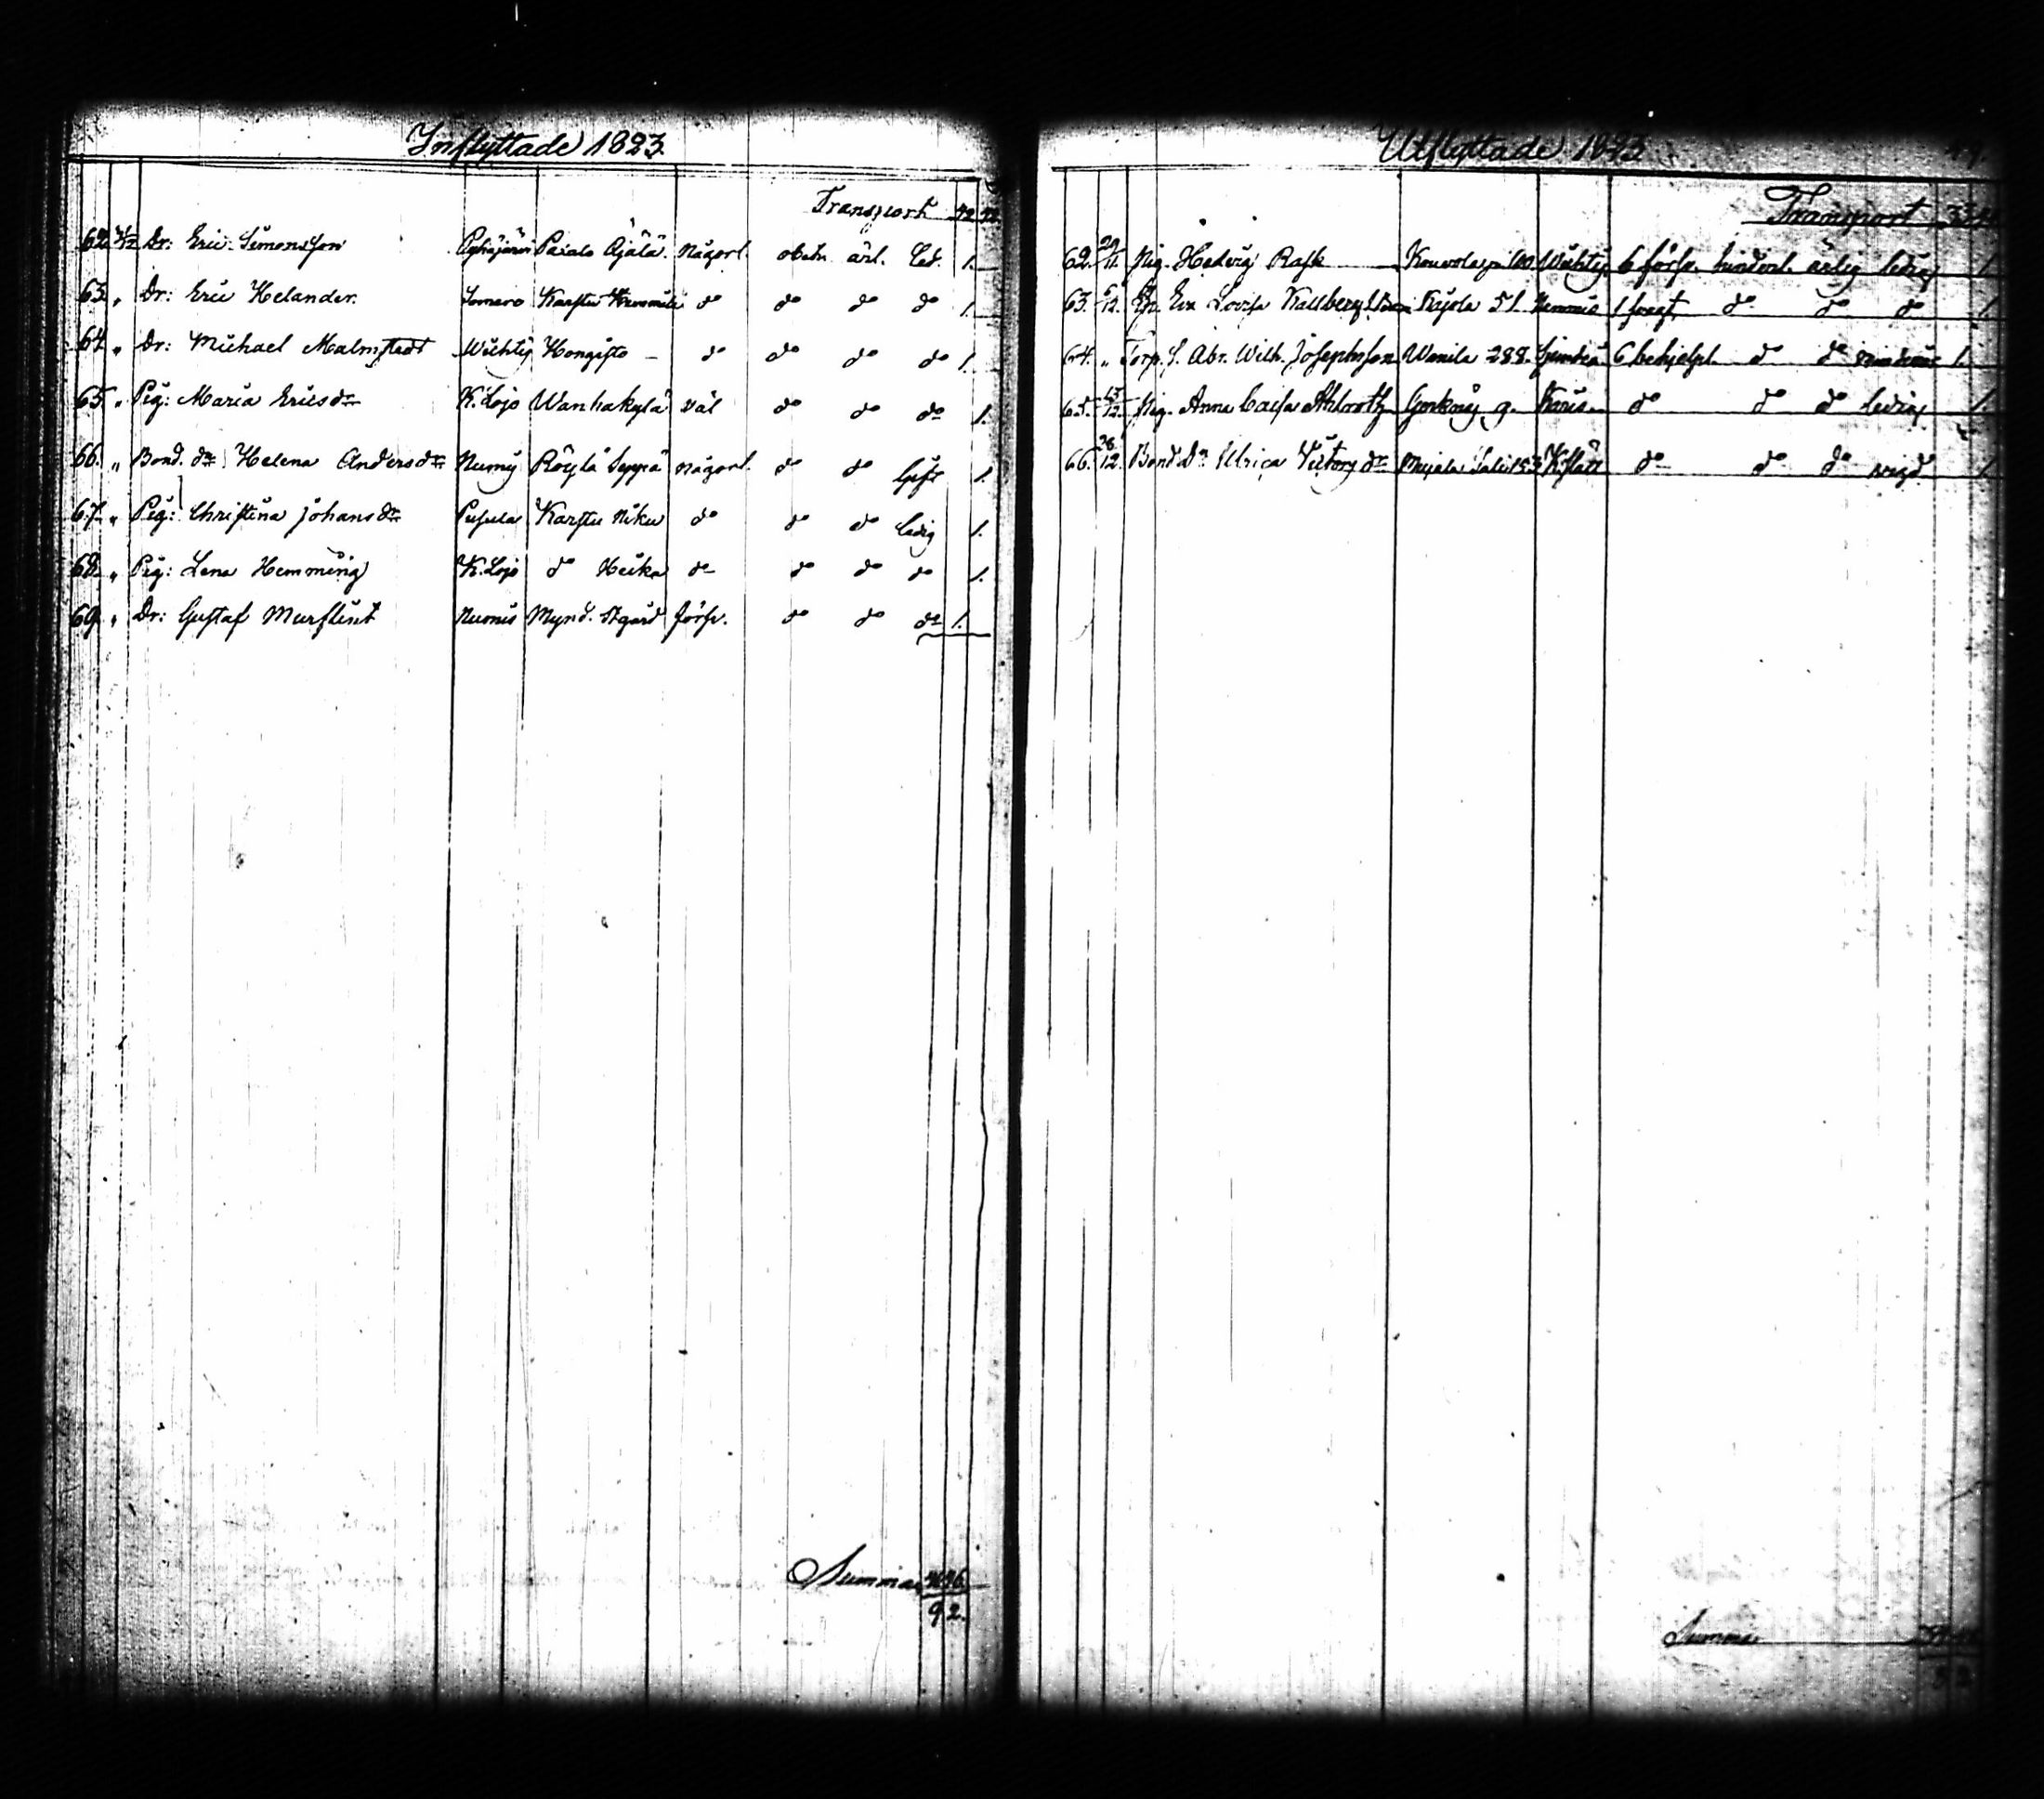 Inflyttade 1823.
Transport 42 42
62. 31/12 Dr: Eric Simonsson Pyhäjärvi Paialo Äjälä Någorl. obeh. ärl. led. 1.
63. " Dr: Eric Helander Somero Karstu do do do do 1.
64. " Dr: Michael Malmstedt Wichtis Hongisto - do do do do 1.
65. " Pig: Maria Ericsdr K. Lojo Wanhakylä väl do do do 1.
66. " Bond. dr Helena Andersdr Numis Röylä Seppä Någorl. do do Gift 1.
67. " Pig: Christina Johansdr Pusula Karstu Niku do do do ledig 1.
68. " Pig: Lena Hemming K. Lojo do Heika do do do do 1.
69. " Dr: Gustaf Murflint Numis Mynd. Stgård förfr. do do do 1.
Summa 46 46
92.
Utflyttade 1823
Transport
62. 29/11. Pig. Hedvig Rask Kouvola Wichtis 6 förfr. hindersl. ärlig ledig 1.
63. 6/12. Eva Lovisa Kallberg Kujola 51. Nummis 1 do do do 1.
64. " Torp. S. Abr. Wilh. Josephsson Wanila 288. Sjundeå 6 behjelpl. do do 1.
65. 13/12. Pig. Anna Caisa Ahlroth Gerknäs 9. Karis do do do ledig 1.
66. 28/12. Bond. Dr Ulrica Victorsdr 153 K:slätt do do do 1
Summa